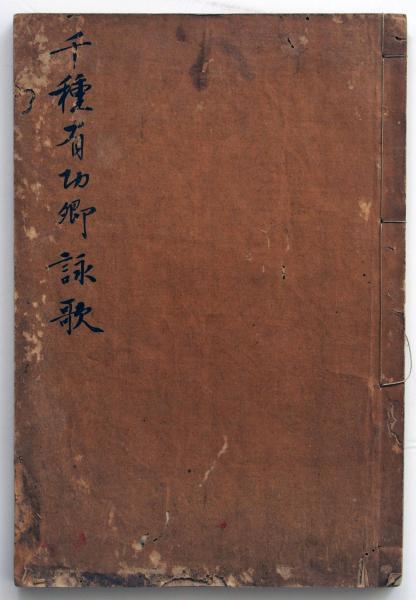 千種有功卿詠歌